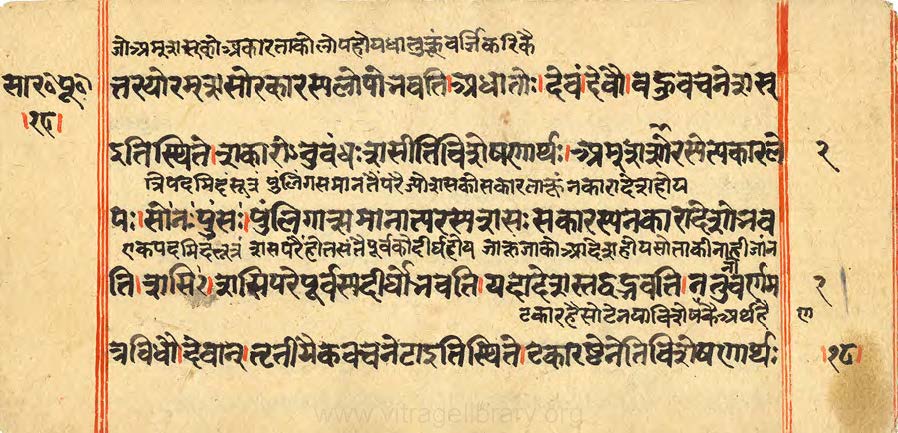 जोअम्शसकोअकारताकोलोपहोयधातुकूंवर्जिकरिकै
सार॰पू॰
त्तस्योरम्शसोरकारस्यलोपोभवतिअधातोः।देवं।देवौ।बहुवचनेशस्
।१८।
इतिस्थिते।शकारोऽनुबंधःशसीतिविशेषणार्थः।अम्शसोरसेत्यकारलो २
त्रिपदमिदंसूत्रं पुलिंगसमानतैंपरैंजोशसकीसकारताकूंनकारादेशहोय
पः।सोनःपुंसः।पुंलिंगात्समानात्परस्यशसःसकारस्यनकारादेशोभव
एकपदमिदंसूत्रं शसपरैंहोतसंतैपूर्वकोदीर्घहोय जोकूजाकोआदेशहोयसोताकीनांहीजान
ति।शसि।शसिपरेपूर्वस्यदीर्घोभवति।यदादेशस्तद्वद्भवति।नतुवर्णमा २
टकारहैसोटेनयाविशेषकैअर्थहै
त्रविधौ।देवान्।तृतीयैकवचनेटाइतिस्थिते।टकारष्टेनेतिविशेषणार्थः ।१८।
www.vitragelibrary.org